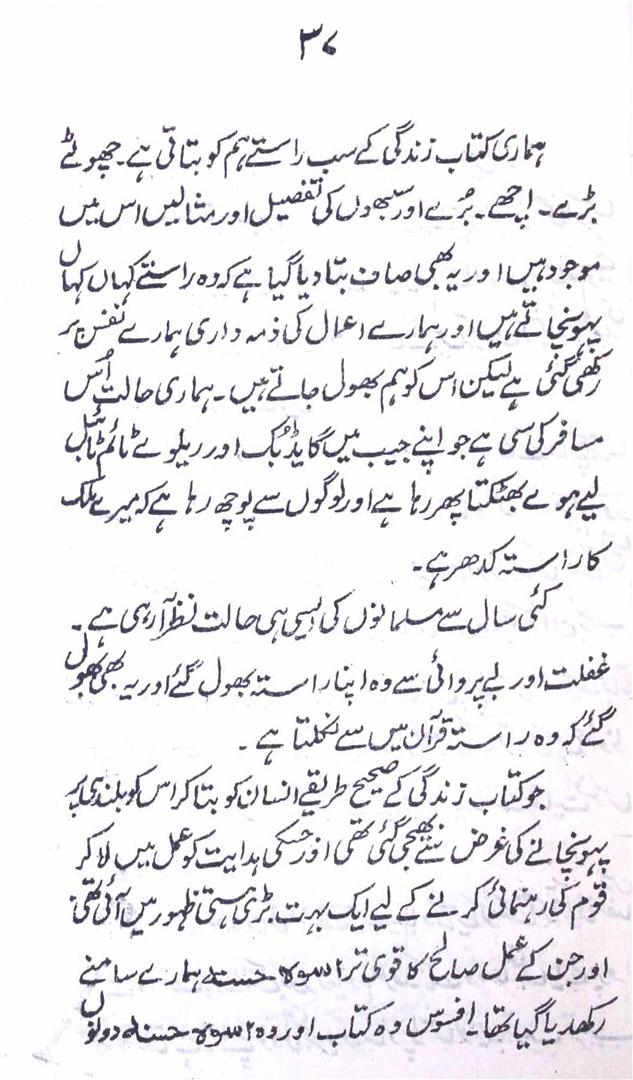 ۳۷
ہماری کتاب زندگی کے سب راستے ہم کو بتاتی ہے۔ چھوٹے
بڑے۔ اچھے۔ بُرے اور سبھوں کی تفصیل اور مثالیں اس میں
موجود ہیں اور یہ بھی صاف بتا دیا گیا ہے کہ وہ راستے کہاں کہاں
پہونچاتے ہیں اور ہمارے اعمال کی ذمہ داری ہمارے نفس پر
رکھی گئی ہے لیکن اس کو ہم بھول جاتے ہیں۔ ہماری حالت اُس
مسافر کی سی ہے جو اپنے جیب میں گایڈ بُک اور ریلوے ٹائم ٹائبل
لیے ہوے بھٹکتا پھر رہا ہے اور لوگوں سے پوچھ رہا ہے کہ میرے ملک
کا راستہ کدھر ہے۔
کئی سال سے مسلمانوں کی ایسی ہی حالت نظر آ رہی ہے۔
غفلت اور بے پروائی سے وہ اپنا راستہ بھول گئے اور یہ بھی بھول
گئے کہ وہ راستہ قرآن میں سے نکلتا ہے۔
جو کتاب زندگی کے صحیح طریقے انسان کو بتا کر اس کو بلندی پر
پہونچانے کی غرض سے بھیجی گئی تھی اور جسکی ہدایت کو عمل میں لا کر
قوم کی رہنمائی کرنے کے لیے ایک بہت بڑی ہستی ظہور میں آئی تھی
اور جن کے عمل صالح کا قوی تر اسوۃ حسنہ ہمارے سامنے
رکھدیا گیا تھا۔ افسوس وہ کتاب اور وہ اسوۃ حسنہ دونوں